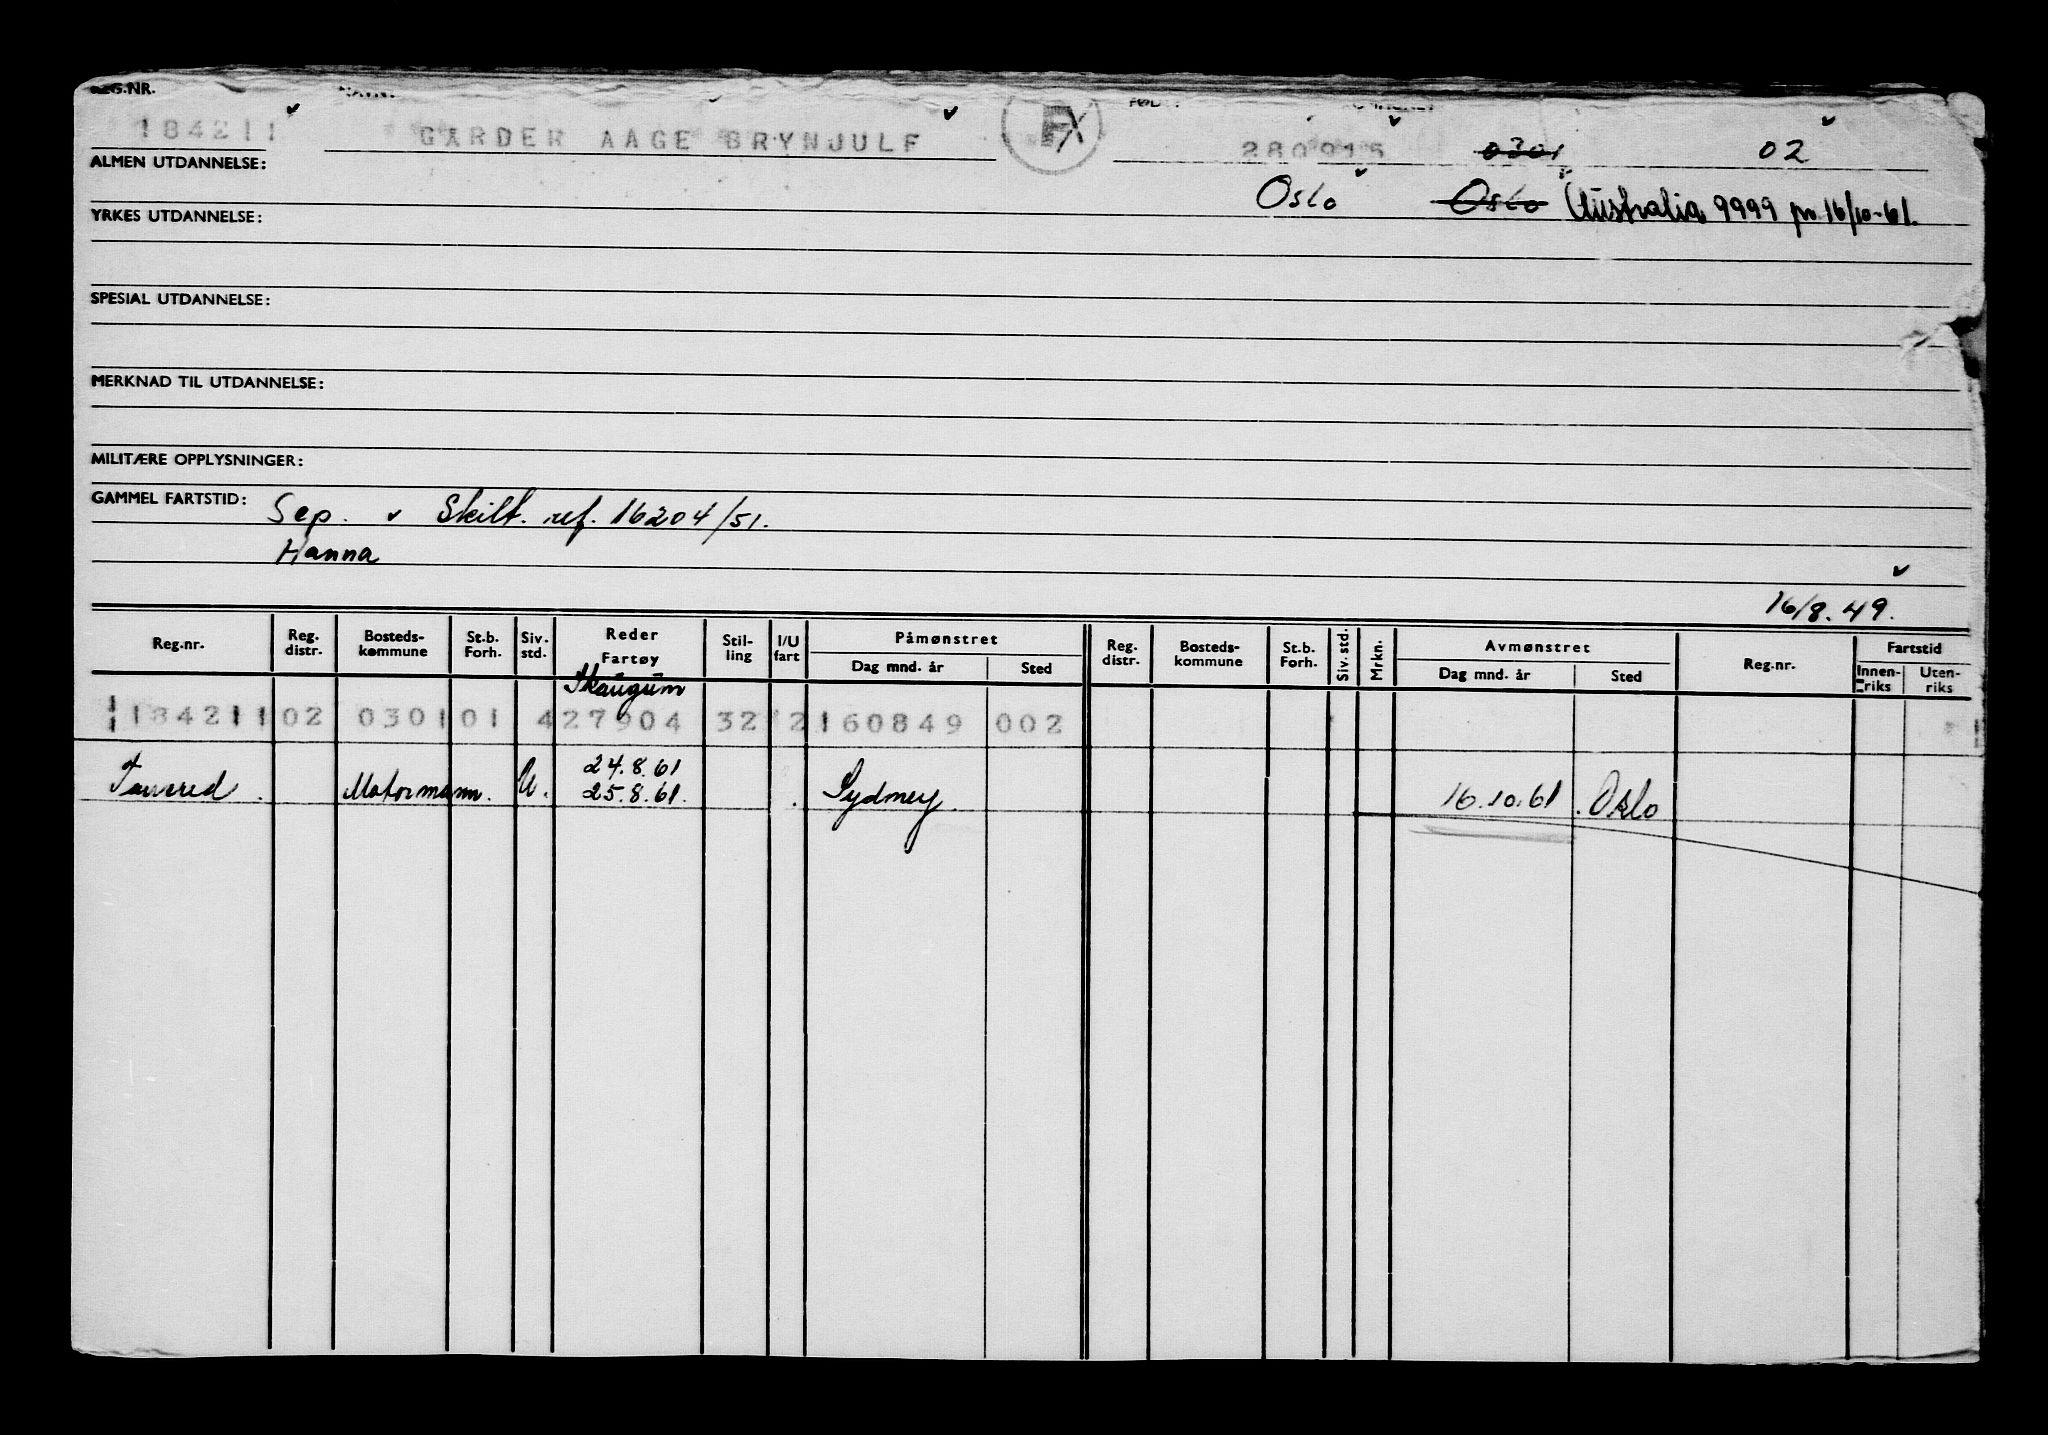 REG.NR. NAVN: FØDT:
184211 GARDER AAGE BRYNJULF FX 280915 0301 02
ALMEN UTDANNELSE:
Oslo Oslo Australia 9999 pr 16/10-61.
YRKES UTDANNELSE:
SPESIAL UTDANNELSE:
MERKNAD TIL UTDANNELSE:
MILITÆRE OPPLYSNINGER:
GAMMEL FARTSTID: Sep. Skilt. ref. 16204/51.
Hanna
16/8.49.
Reg.nr. Reg. distr. Bosteds- kommune St.b. Forh. Siv. std. Reder Fartøy Stil- ling I/U fart Påmønstret Dag mnd. år Sted Reg. distr. Bosteds- kommune St.b. Forh. Siv. std. Mrkn. Avmønstret Dag mnd. år Sted Reg.nr. Fartstid Innen- riks Uten- riks
Skaugum
184211 02 0301 01 4 27904 32 2 160849 002
24.8.61
Motormann. U. 25.8.61. Sydney. 16.10.61. Oslo